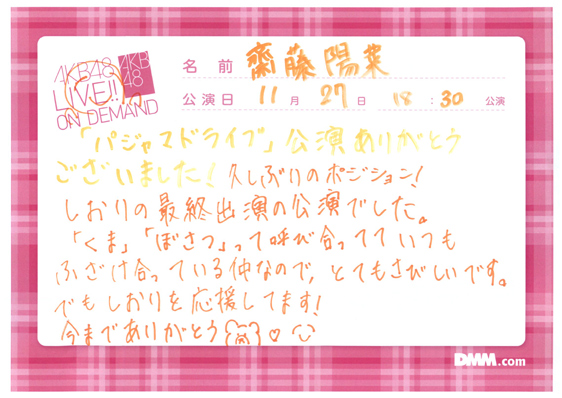 AKB48
LIVE!!
ON DEMAND
AKB
48
名前 齋藤陽菜
公演日 11月27日 18:30公演
「パジャマドライブ」公演ありがとう
ございました！久しぶりのポジション！
しおりの最終出演の公演でした。
「くま」「ぼさつ」って呼び合ってていつも
ふざけ合っている仲なので、とてもさびしいです。
でもしおりを応援してます！
今までありがとう
DMM.com